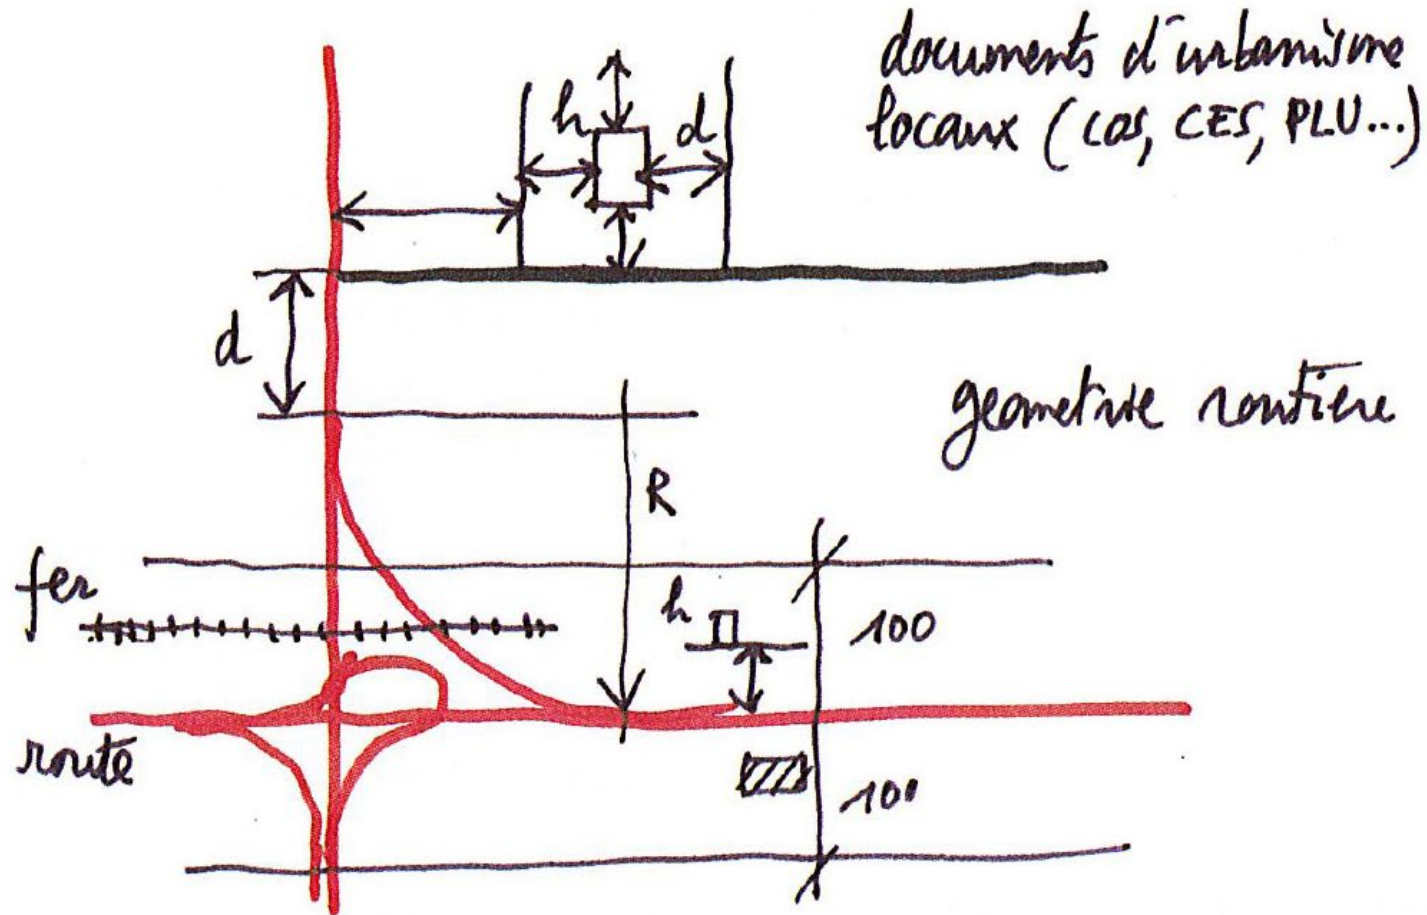 documents d'urbanisme
locaux (COS, CES, PLU...)
h
d
d
geometrie routière
R
fer
h
100
route
100